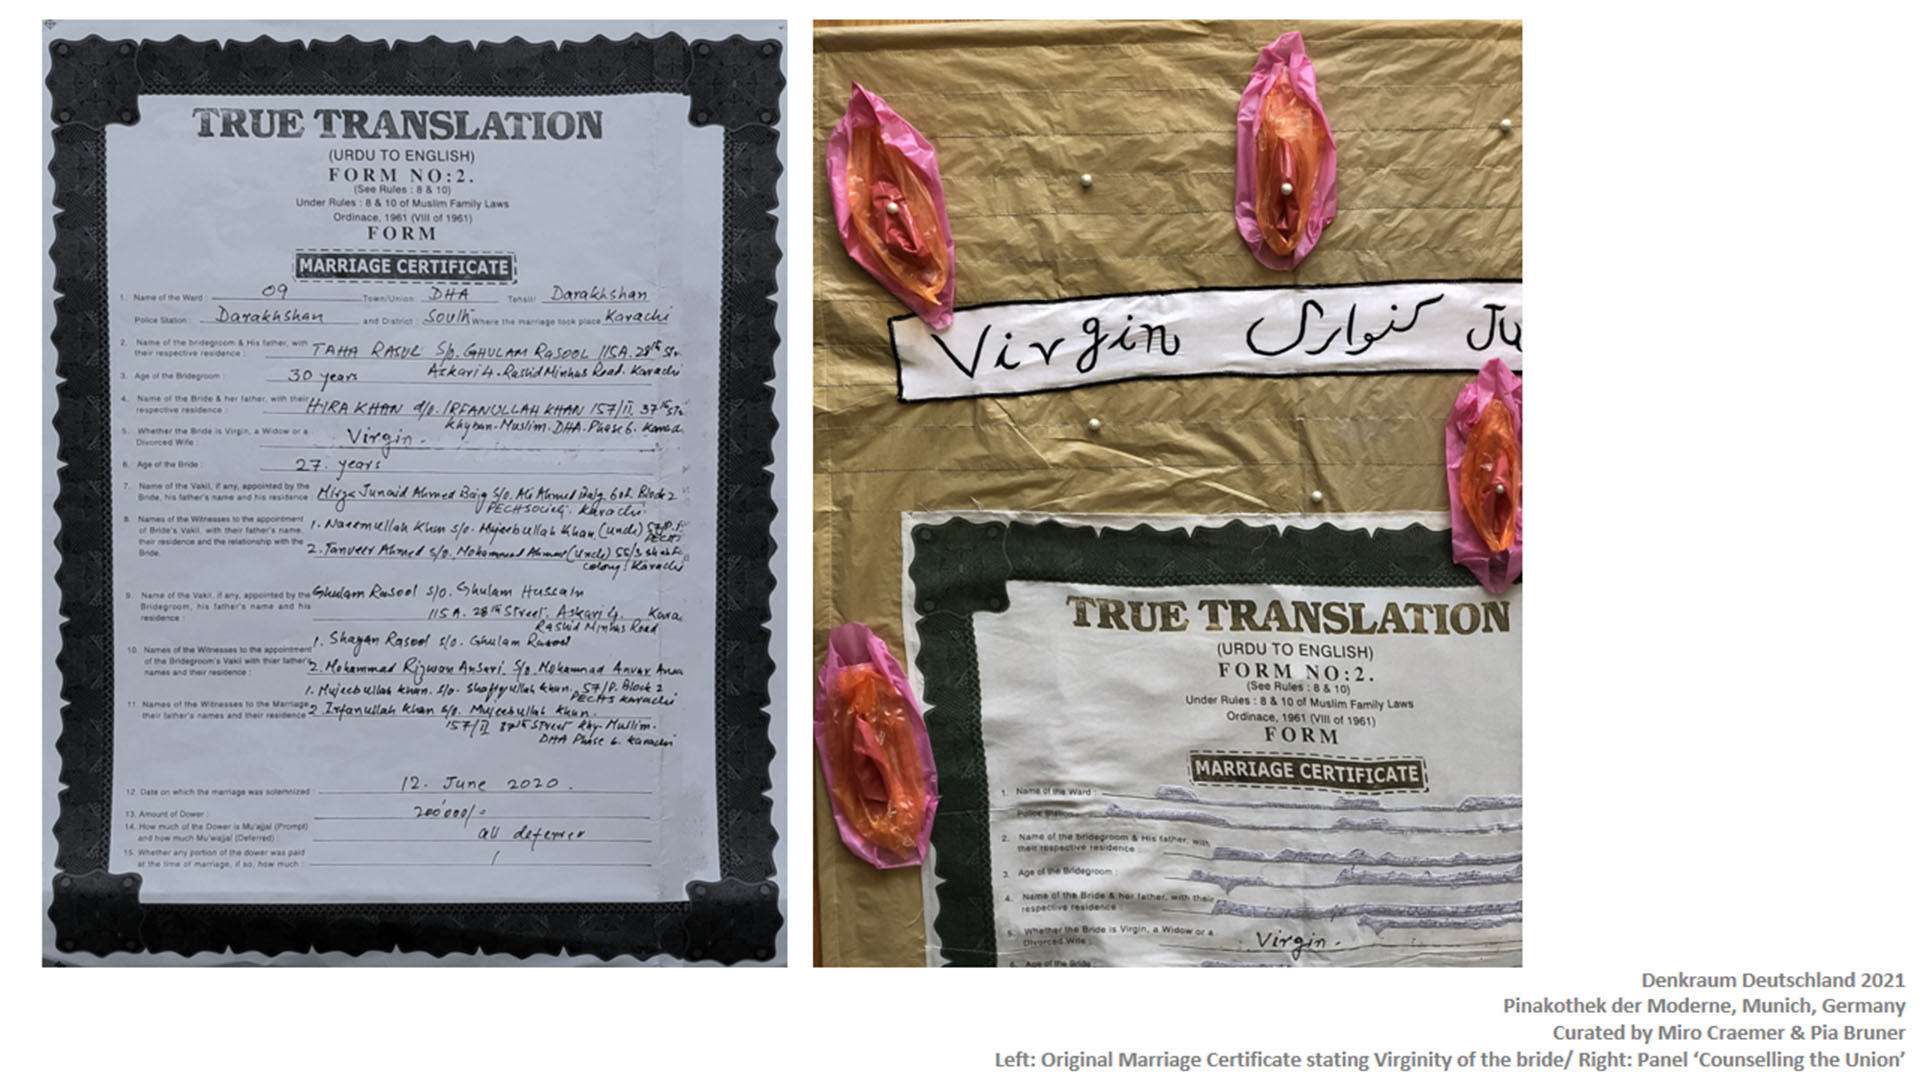 TRUE TRANSLATION
(URDU TO ENGLISH)
FORM NO:2.
(See Rules : 8 & 10)
Under Rules : 8 & 10 of Muslim Family Laws
Ordinace, 1961 (VIII of 1961)
FORM
MARRIAGE CERTIFICATE
1. Name of the Ward : 09 Town/Union: DHA Tehsil/ Darakhshan
Police Station : Darakhshan and District : South Where the marriage took place Karachi
2. Name of the bridegroom & His father, with
their respective residence : TAHA RASUL S/o. GHULAM RASOOL 115A. 28th Str
Askari 4. Rashid Minhas Road. Karachi
3. Age of the Bridegroom : 30 years
4. Name of the Bride & her father, with their
respective residence : HIRA KHAN d/o. IRFANULLAH KHAN 157/II. 37th
Khyban-Muslim. DHA. Phase 6.
5. Whether the Bride is Virgin, a Widow or a
Divorced Wife : Virgin.
6. Age of the Bride : 27. years
7. Name of the Vakil, if any, appointed by the
Bride, his father's name and his residence : Mirza Junaid Ahmed Baig S/o. Ali Ahmed Baig Block 2
PECHSociety. Karachi.
8. Names of the Witnesses to the appointment
of Bride's Vakil, with their father's name,
their residence and the relationship with the
Bride.
1. Naeemullah Khan s/o. Mujeebullah Khan (uncle)
PECHS
2. Tanveer Ahmed s/o. Mohammad Ahmed (uncle)
colony. Karachi
9. Name of the Vakil, if any, appointed by the
Bridegroom, his father's name and his
residence :
Ghulam Rasool s/o. Ghulam Hussain
115A. 28th Street. Askari 4. Kara
Rashid Minhas Road
10. Names of the Witnesses to the appointment
of the Bridegroom's Vakil with thier father's
names and their residence :
1. Shayan Rasool s/o. Ghulam Rasool
2. Mohammad Rizwan Ansari. S/o. Mohammad Anvar
11. Names of the Witnesses to the Marriage
their father's names and their residence
1. Mujeebullah Khan. s/o. Shafiqullah Khan. 57/P. Block 2
PECHS Karachi
2. Irfanullah Khan s/o. Mujeebullah Khan.
157/II 37th Street Khy. Muslim.
DHA Phase 6. Karachi
12. Date on which the marriage was solemnized : 12. June 2020.
13. Amount of Dower : 200'000/=
14. How much of the Dower is Mu'ajjal (Prompt)
and how much Mu'wajjal (Deferred) : all deferrer
15. Whether any portion of the dower was paid
at the time of marriage, if so, how much : /
Virgin کنواری Ju
TRUE TRANSLATION
(URDU TO ENGLISH)
FORM NO:2.
(See Rules : 8 & 10)
Under Rules : 8 & 10 of Muslim Family Laws
Ordinace, 1961 (VIII of 1961)
FORM
MARRIAGE CERTIFICATE
1. Name of the Ward :
Police Station :
2. Name of the bridegroom & His father, with
their respective residence :
3. Age of the Bridegroom :
4. Name of the Bride & her father, with their
respective residence :
5. Whether the Bride is Virgin, a Widow or a
Divorced Wife : Virgin.
6. Age of the Bride
Denkraum Deutschland 2021
Pinakothek der Moderne, Munich, Germany
Curated by Miro Craemer & Pia Bruner
Left: Original Marriage Certificate stating Virginity of the bride/ Right: Panel ‘Counselling the Union’